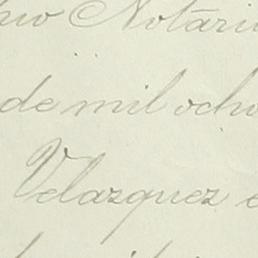 Notari
de mil ocho
Velazquez